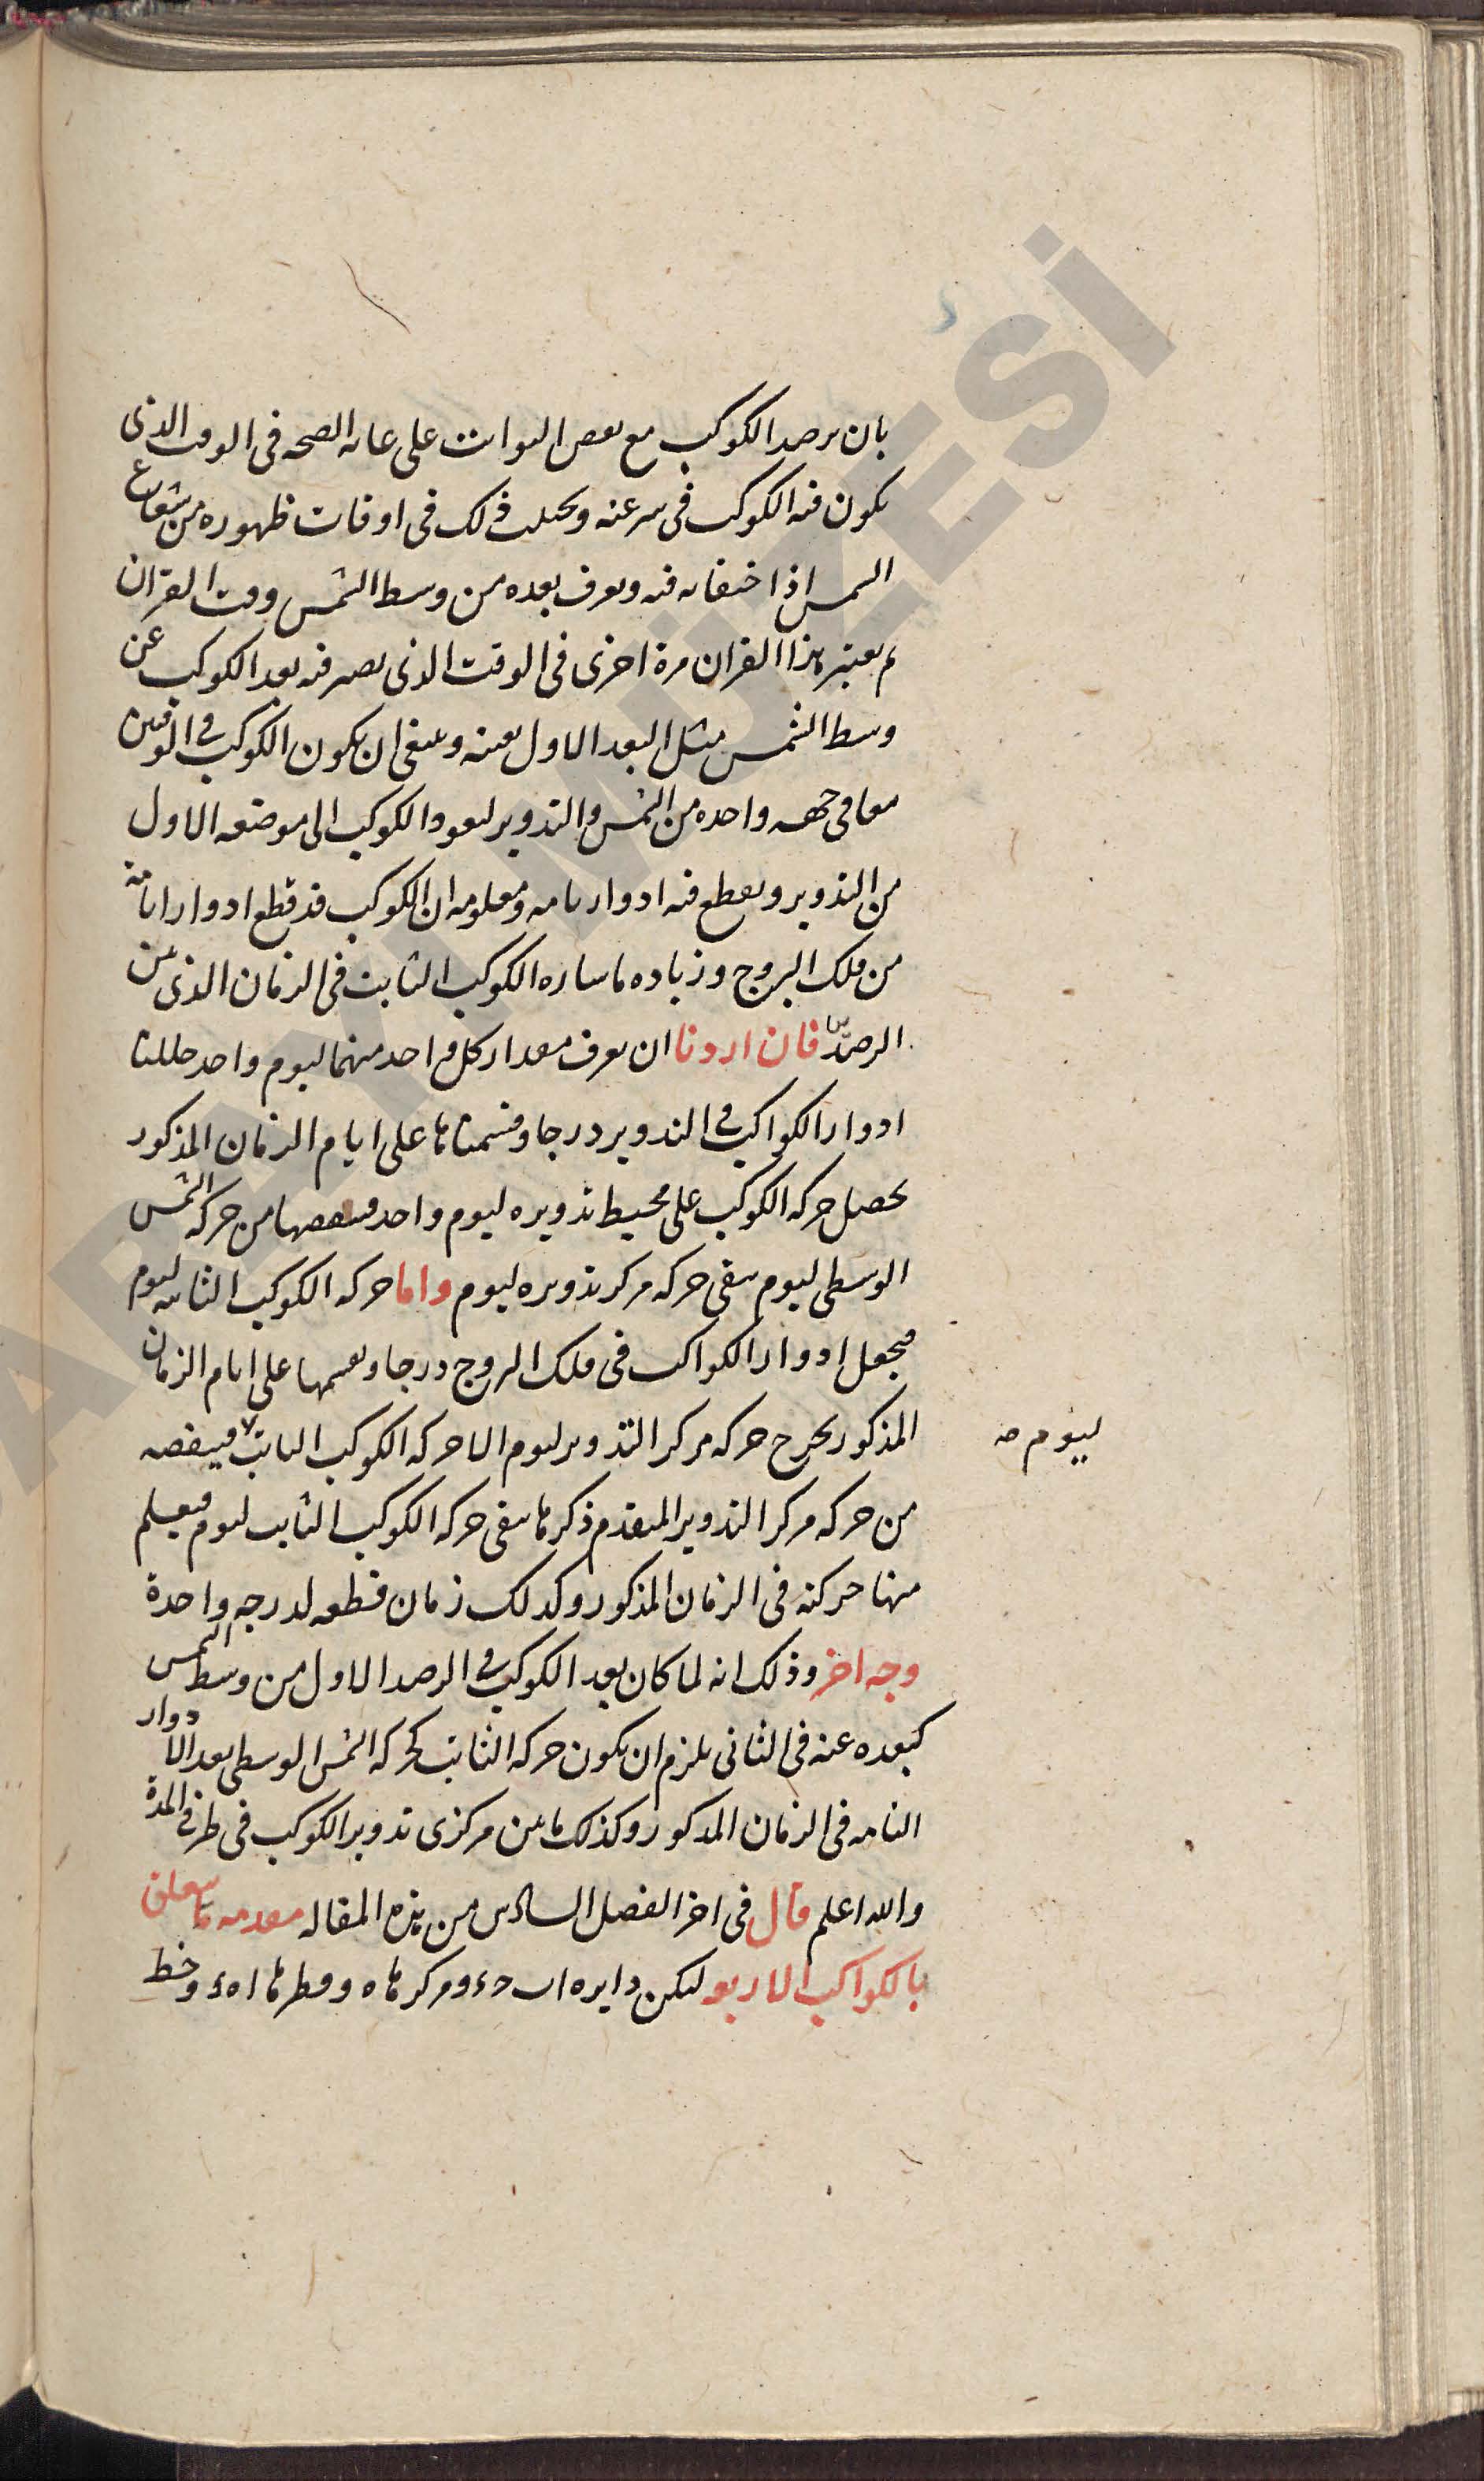 بان يرصد الكوكب مع بعض الثوابت على غايه الصحه فى الوقت الذى
يكون فيه الكوكب فى سرعته ويحيلت ذلك فى اوقات ظهوره من شعاع
الشمس اذا خفايه فيه ويعرف بعده من وسط الشمس وقت القران
ثم يعتبر هذا القران مرة اخرى فى الوقت الذى يصير فيه بعد الكوكب عن
وسط الشمس مثل البعد الاول بعينه وينبغى ان يكون الكوكب فى الوقتين
معا فى جهه واحده من الشمس والتدوير ليعود الكوكب الى موضعه الاول
من التدوير ويقطع فيه ادوار تامه ومعلومه ان الكوكب قد قطع ادوارا تامة
من فلك البروج وزياده ما ساره الكوكب الثابت فى الزمان الذى بين
الرصدين فان اردنا ان نعرف مقدار كل واحد منهما ليوم واحد حللنا
ادوار الكواكب فى التدوير درجا وقسمناها على ايام الزمان المذكور
يحصل حركه الكوكب على محيط تدويره ليوم واحد فننقصها من حركه الشمس
الوسطى ليوم يبقى حركه مركز تدويره ليوم واما حركه الكوكب الثابته ليوم
فيجعل ادوار الكواكب فى فلك البروج درجا ونقسمها على ايام الزمان
المذكور يخرج حركه مركز التدوير ليوم الا حركه الكوكب الثابت فينقصه
ليوم صه
من حركه مركز التدوير المتقدم ذكرها يبقى حركه الكوكب الثابت ليوم فيعلم
منها حركته فى الزمان المذكور وكذلك زمان قطعه لدرجه واحدة
وجه اخر وذلك انه لما كان بعد الكوكب فى الرصد الاول من وسط الشمس
كبعده عنه فى الثانى يلزم ان يكون حركه الثابت كحركه الشمس الوسطى بعد الادوار
التامه فى الزمان المذكور وكذلك ما بين مركزى تدوير الكوكب فى طرفى المدة
والله اعلم قال فى اخر الفصل السادس من هذه المقاله مقدمه ما يتعلق
بالكواكب الاربع ليكن دايره ا ب ح د ومركزها ه وقطرها ا ه د وخط